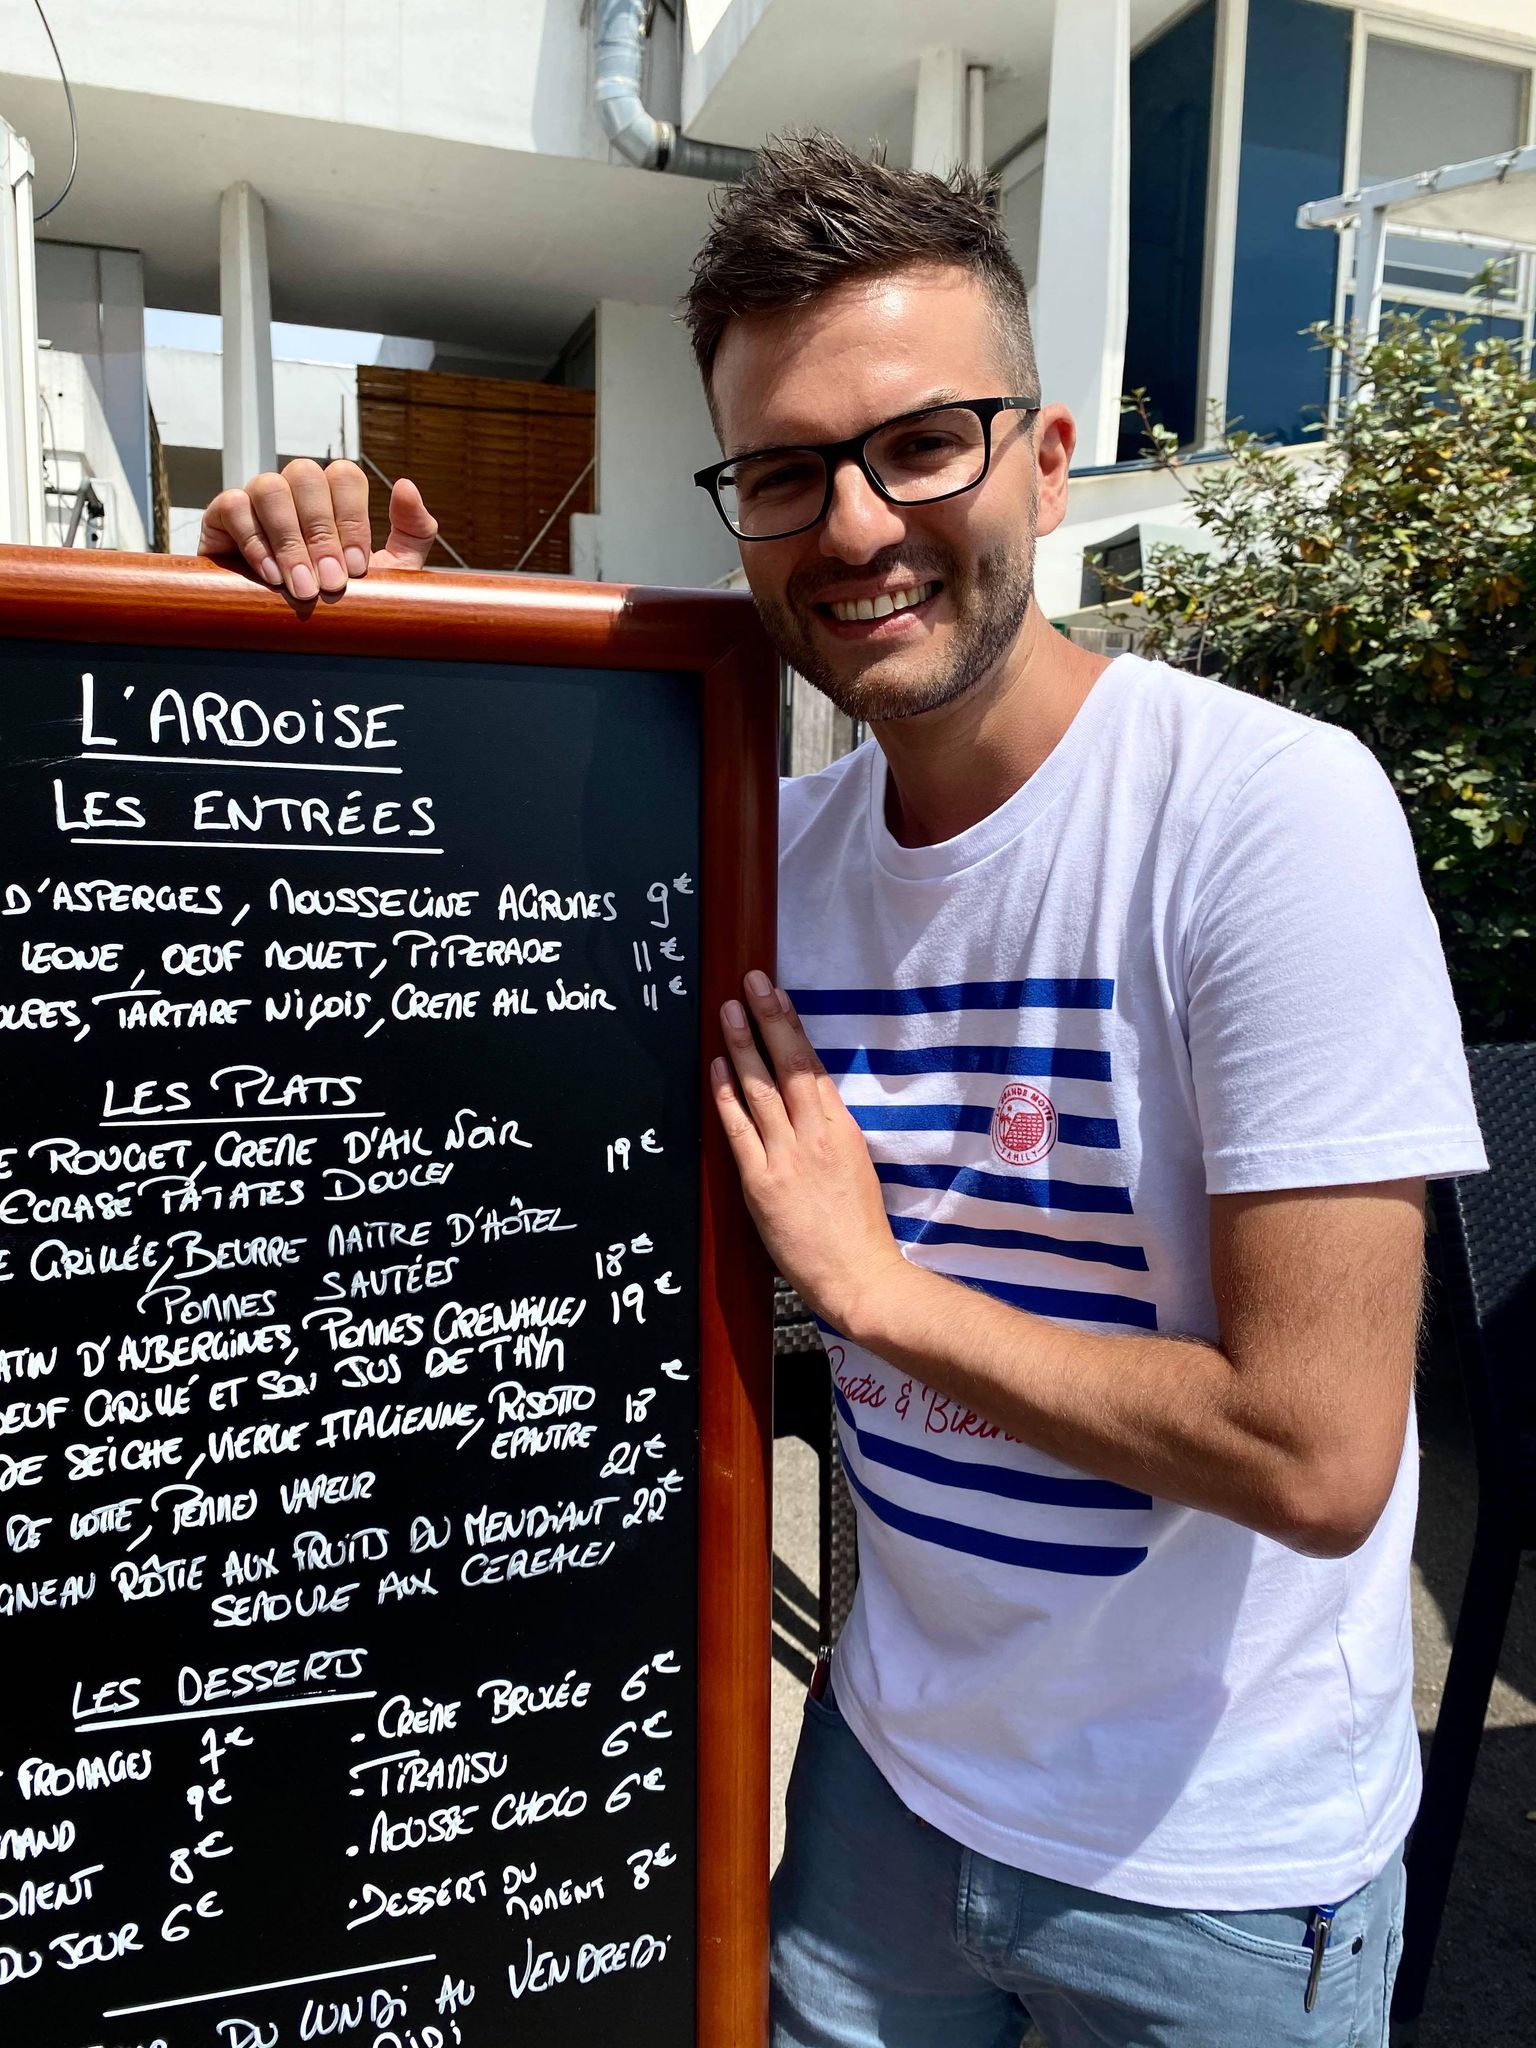 L'ARDOISE
LES ENTRÉES
D'ASPERGES, MOUSSELINE AGRUMES 9€
LEONE, OEUF MOLLET, PIPERADE 11€
TARTARE NIÇOIS, CREME AIL NOIR 11€
LES PLATS
ROUGET, CREME D'AIL NOIR 19€
ECRASÉ PATATES DOUCES
GRILLÉE, BEURRE MAITRE D'HÔTEL
POMMES SAUTÉES 18€
D'AUBERGINES, POMMES GRENAILLES 19€
GRILLÉ ET SON JUS DE THYM
DE SEICHE, VIERGE ITALIENNE, RISOTTO 18€
EPAUTRE
DE LOTTE, POMMES VAPEUR 21€
RÔTIE AUX FRUITS DU MENDIANT 22€
SEMOULE AUX CEREALES
LES DESSERTS
FROMAGES 7€
9€
8€
DU JOUR 6€
- CRÈME BRULÉE 6€
- TIRAMISU 6€
. MOUSSE CHOCO 6€
. DESSERT DU
MOMENT 8€
DU LUNDI AU VENDREDI
LA GRANDE MOTTE
FAMILY
Pastis &